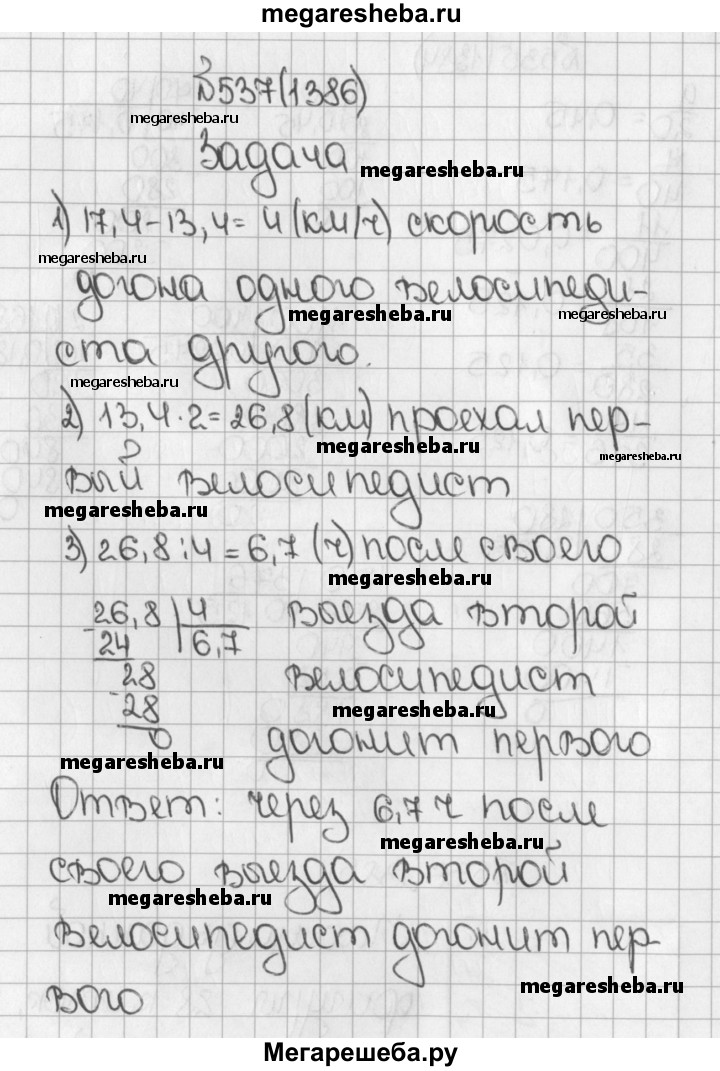 megaresheba.ru
№537(1386)
megaresheba.ru
Задача
megaresheba.ru
1) 17,4-13,4= 4 (км/ч) скорость
megaresheba.ru
догона одного велосипеди-
megaresheba.ru megaresheba.ru
ста другого.
megaresheba.ru
2) 13,4·2=26,8 (км) проехал пер-
megaresheba.ru megaresheba.ru
вый велосипедист
megaresheba.ru
3) 26,8:4=6,7 (ч) после своего
megaresheba.ru
26,8 | 4 выезда второй
- 24 6,7
28 велосипедист
- 28 megaresheba.ru
0 догонит первого
megaresheba.ru
Ответ: через 6,7 ч после
megaresheba.ru
своего выезда второй
megaresheba.ru
велосипедист догонит пер-
megaresheba.ru
вого
Мегарешеба.ру